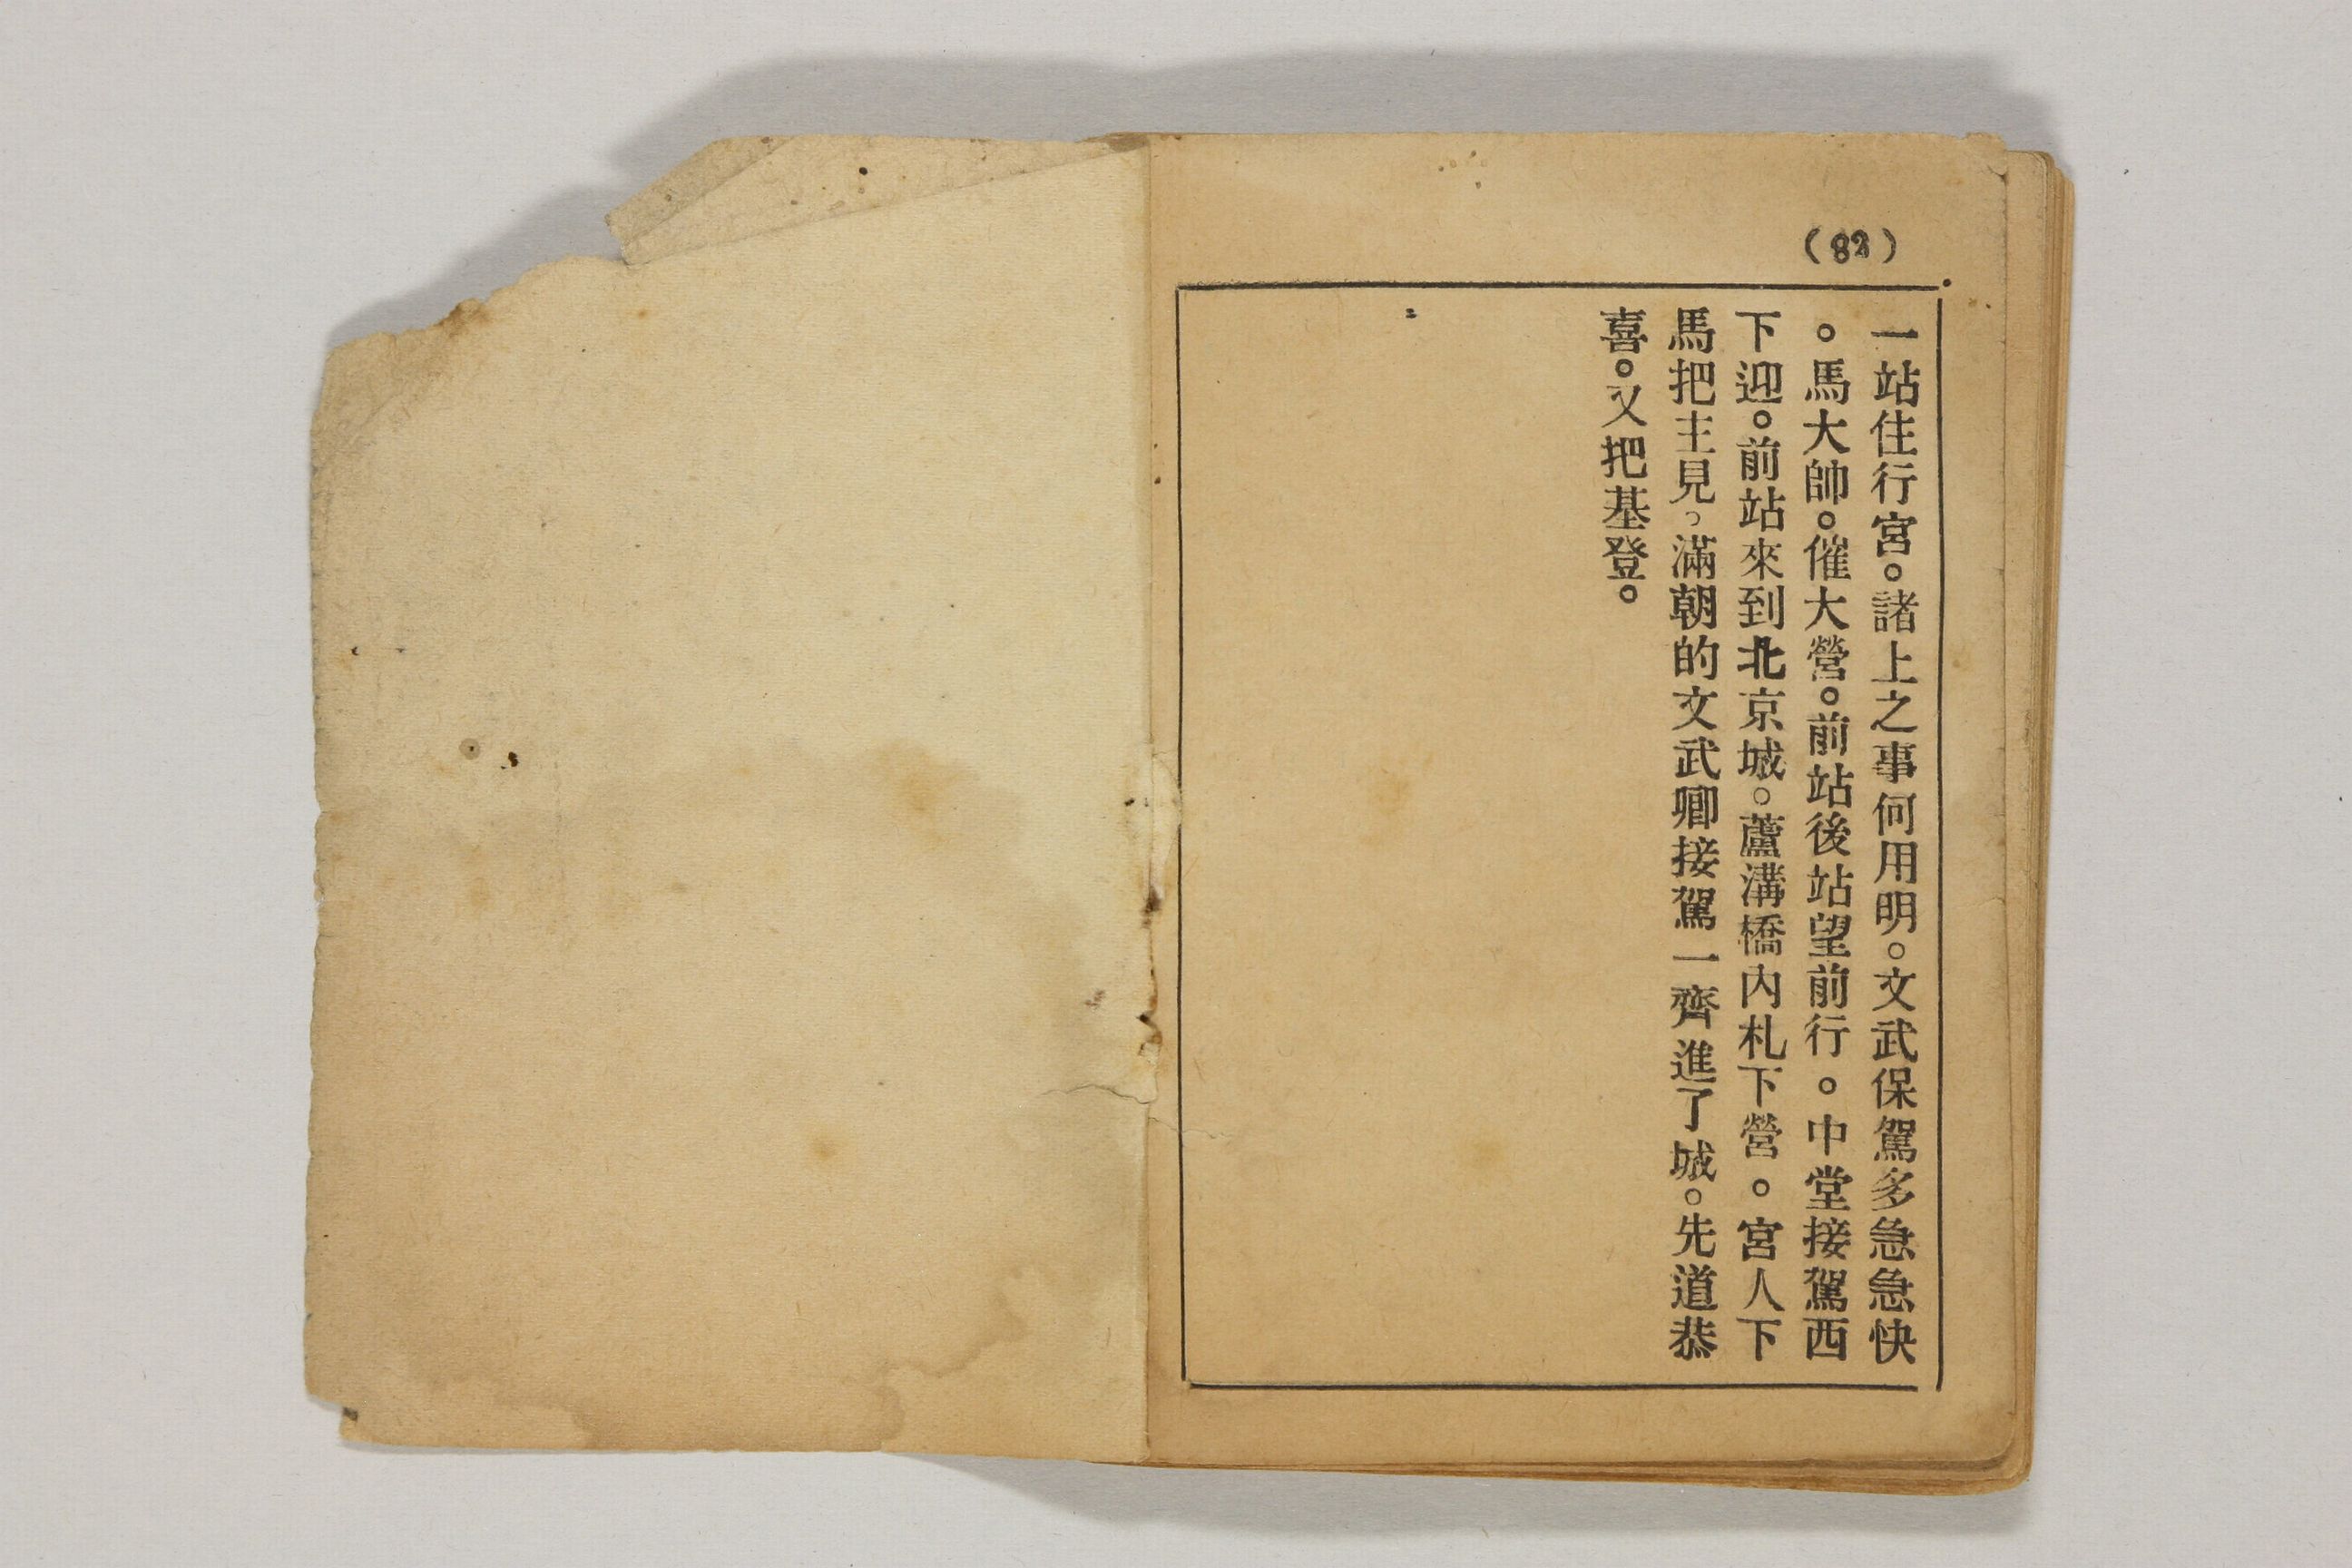 (82)
一站住行宮。諸上之事何用明。文武保駕多急急快
。馬大帥。催大營。前站後站望前行。中堂接駕西
下迎。前站來到北京城。蘆溝橋內札下營。宮人下
馬把主見。滿朝的文武卿接駕一齊進了城。先道恭
喜。又把基登。